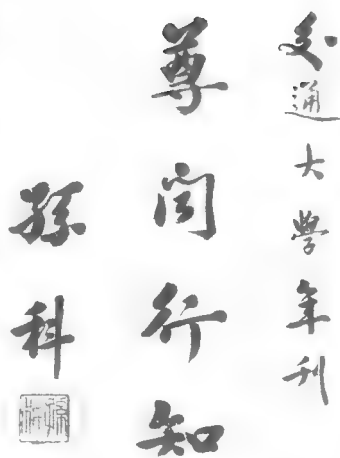 交通大學年刊
尊聞行知
孫科